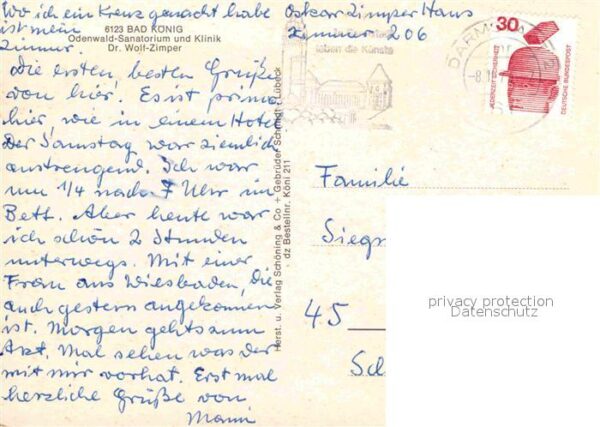 Wo ich ein Kreuz gemacht habe
ist mein
Zimmer.
Oskar Zimper Haus
Zimmer 206
6123 BAD KÖNIG
Odenwald-Sanatorium und Klinik
Dr. Wolf-Zimper
Die ersten, besten Grüße
von hier. Es ist prima
hier, wie in einem Hotel
Der Samstag war ziemlich
anstrengend. Ich war
um 1/4 nach 7 Uhr im
Bett. Aber heute war
ich schon 2 Stunden
unterwegs. Mit einer
Frau aus Wiesbaden, die
auch gestern angekommen
ist. Morgen gehts zum
Arzt. Mal sehen was der
mit mir vorhat. Erst mal
herzliche Grüße von
Mami
Herst. u. Verlag Schöning & Co + Gebrüder Schmidt, Lübeck
dz Bestellnr. Köni 211
leben die Künste
DARM
30
JEDERZEIT SICHERHEIT
DEUTSCHE BUNDESPOST
Familie
Siegr
45
Sch
privacy protection
Datenschutz